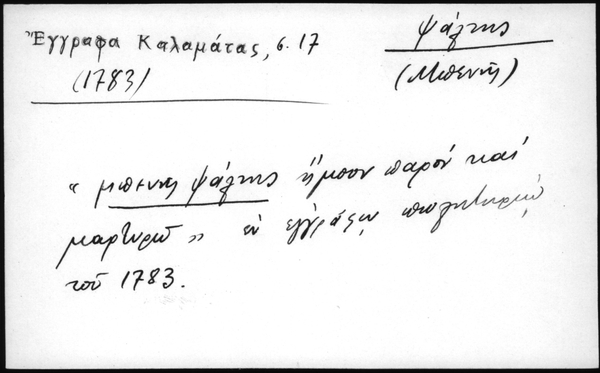 Ἔγγραφα Καλαμάτας, σ. 17
(1783)
Ψάλτης
(Μπενῆς)
« μπενῆς ψάλτης ἤμουν παρὸν καὶ
μαρτυρῶ » ἐν ἐγγράφῳ πωλητηρίῳ
τοῦ 1783.